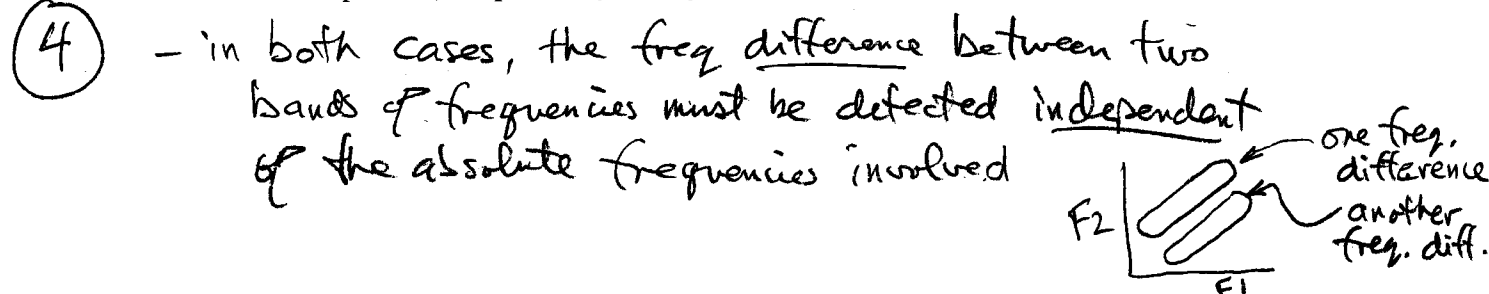 4 - in both cases, the freq difference between two
bands of frequencies must be detected independent
of the absolute frequencies involved
one freq.
difference
another
freq. diff.
F2
F1